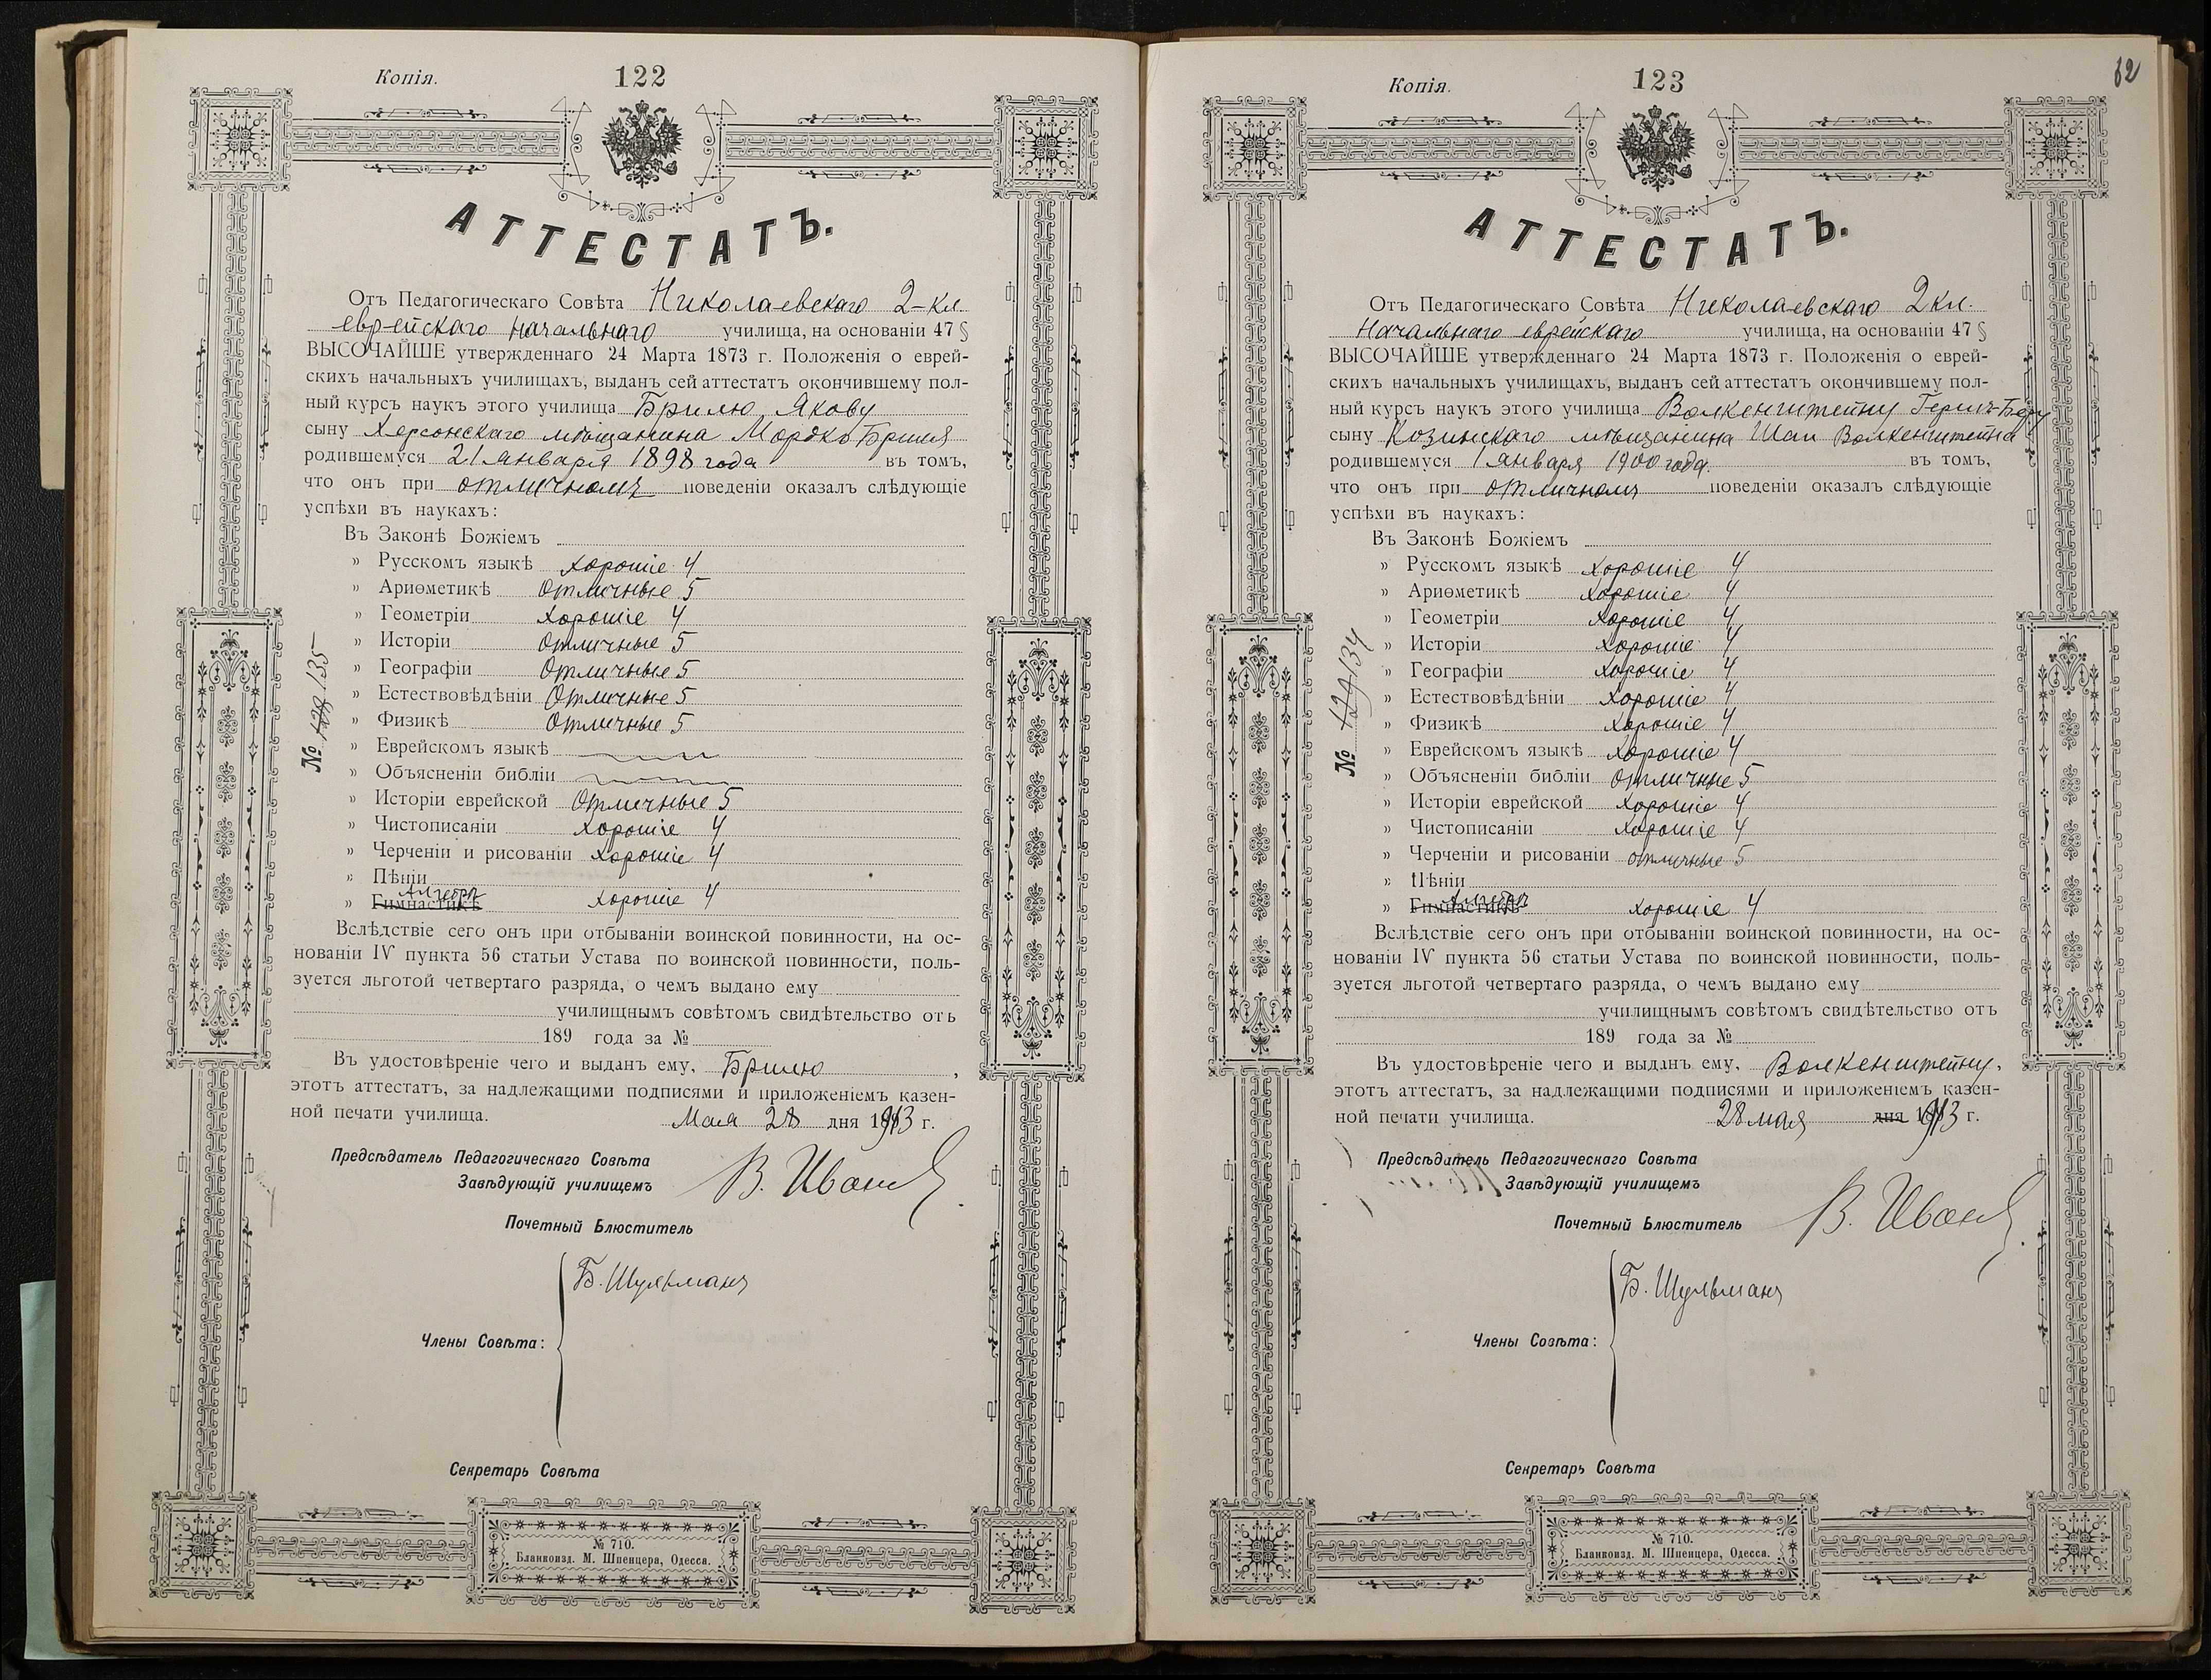 Копія.
122
АТТЕСТАТЪ.
Отъ Педагогическаго Совѣта Николаевскаго 2-кл.
еврейскаго начальнаго училища, на основаніи 47 §
ВЫСОЧАЙШЕ утвержденнаго 24 Марта 1873 г. Положенія о еврей-
скихъ начальныхъ училищахъ, выданъ сей аттестатъ окончившему пол-
ный курсъ наукъ этого училища Брилю Якову
сыну Херсонскаго мѣщанина Мордко Бриля
родившемуся 21 января 1898 года въ томъ,
что онъ при отличномъ поведеніи оказалъ слѣдующіе
успѣхи въ наукахъ:
Въ Законѣ Божіемъ
» Русскомъ языкѣ хорошіе 4
» Ариѳметикѣ Отличные 5
» Геометріи хорошіе 4
» Исторіи Отличные 5
» Географіи Отличные 5
» Естествовѣдѣніи Отличные 5
» Физикѣ Отличные 5
» Еврейскомъ языкѣ
» Объясненіи библіи
» Исторіи еврейской Отличные 5
» Чистописаніи хорошіе 4
» Черченіи и рисованіи хорошіе 4
» Пѣніи
Алгебрѣ
» Гимнастикѣ хорошіе 4
№ 128 135
Вслѣдствіе сего онъ при отбываніи воинской повинности, на ос-
нованіи IV пункта 56 статьи Устава по воинской повинности, поль-
зуется льготой четвертаго разряда, о чемъ выдано ему
училищнымъ совѣтомъ свидѣтельство отъ
189 года за №
Въ удостовѣреніе чего и выданъ ему, Брилю,
этотъ аттестатъ, за надлежащими подписями и приложеніемъ казен-
ной печати училища. Мая 28 дня 1913 г.
Предсѣдатель Педагогическаго Совѣта
Завѣдующій училищемъ В. Иванов
Почетный Блюститель
Б. Шульманъ
Члены Совѣта:
Секретарь Совѣта
№ 710.
Бланкоизд. М. Шпенцера, Одесса.
62
Копія.
123
АТТЕСТАТЪ.
Отъ Педагогическаго Совѣта Николаевскаго 2 кл.
Начальнаго еврейскаго училища, на основаніи 47 §
ВЫСОЧАЙШЕ утвержденнаго 24 Марта 1873 г. Положенія о еврей-
скихъ начальныхъ училищахъ, выданъ сей аттестатъ окончившему пол-
ный курсъ наукъ этого училища Волкенштейну Герш-Беру
сыну Козинскаго мѣщанина Шаи Волкенштейна
родившемуся 1 января 1900 года. въ томъ,
что онъ при отличномъ поведеніи оказалъ слѣдующіе
успѣхи въ наукахъ:
Въ Законѣ Божіемъ
» Русскомъ языкѣ хорошіе 4
» Ариѳметикѣ хорошіе 4
» Геометріи хорошіе 4
» Исторіи хорошіе 4
» Географіи хорошіе 4
» Естествовѣдѣніи хорошіе 4
» Физикѣ хорошіе 4
» Еврейскомъ языкѣ хорошіе 4
» Объясненіи библіи отличные 5
» Исторіи еврейской хорошіе 4
» Чистописаніи хорошіе 4
» Черченіи и рисованіи отличные 5
» Пѣніи
Алгебрѣ
» Гимнастикѣ хорошіе 4
№ 129 134
Вслѣдствіе сего онъ при отбываніи воинской повинности, на ос-
нованіи IV пункта 56 статьи Устава по воинской повинности, поль-
зуется льготой четвертаго разряда, о чемъ выдано ему
училищнымъ совѣтомъ свидѣтельство отъ
189 года за №
Въ удостовѣреніе чего и выданъ ему, Волкенштейну,
этотъ аттестатъ, за надлежащими подписями и приложеніемъ казен-
ной печати училища. 28 мая дня 1913 г.
Предсѣдатель Педагогическаго Совѣта
Завѣдующій училищемъ
Почетный Блюститель В. Иванов
Б. Шульманъ
Члены Совѣта:
Секретарь Совѣта
№ 710.
Бланкоизд. М. Шпенцера, Одесса.